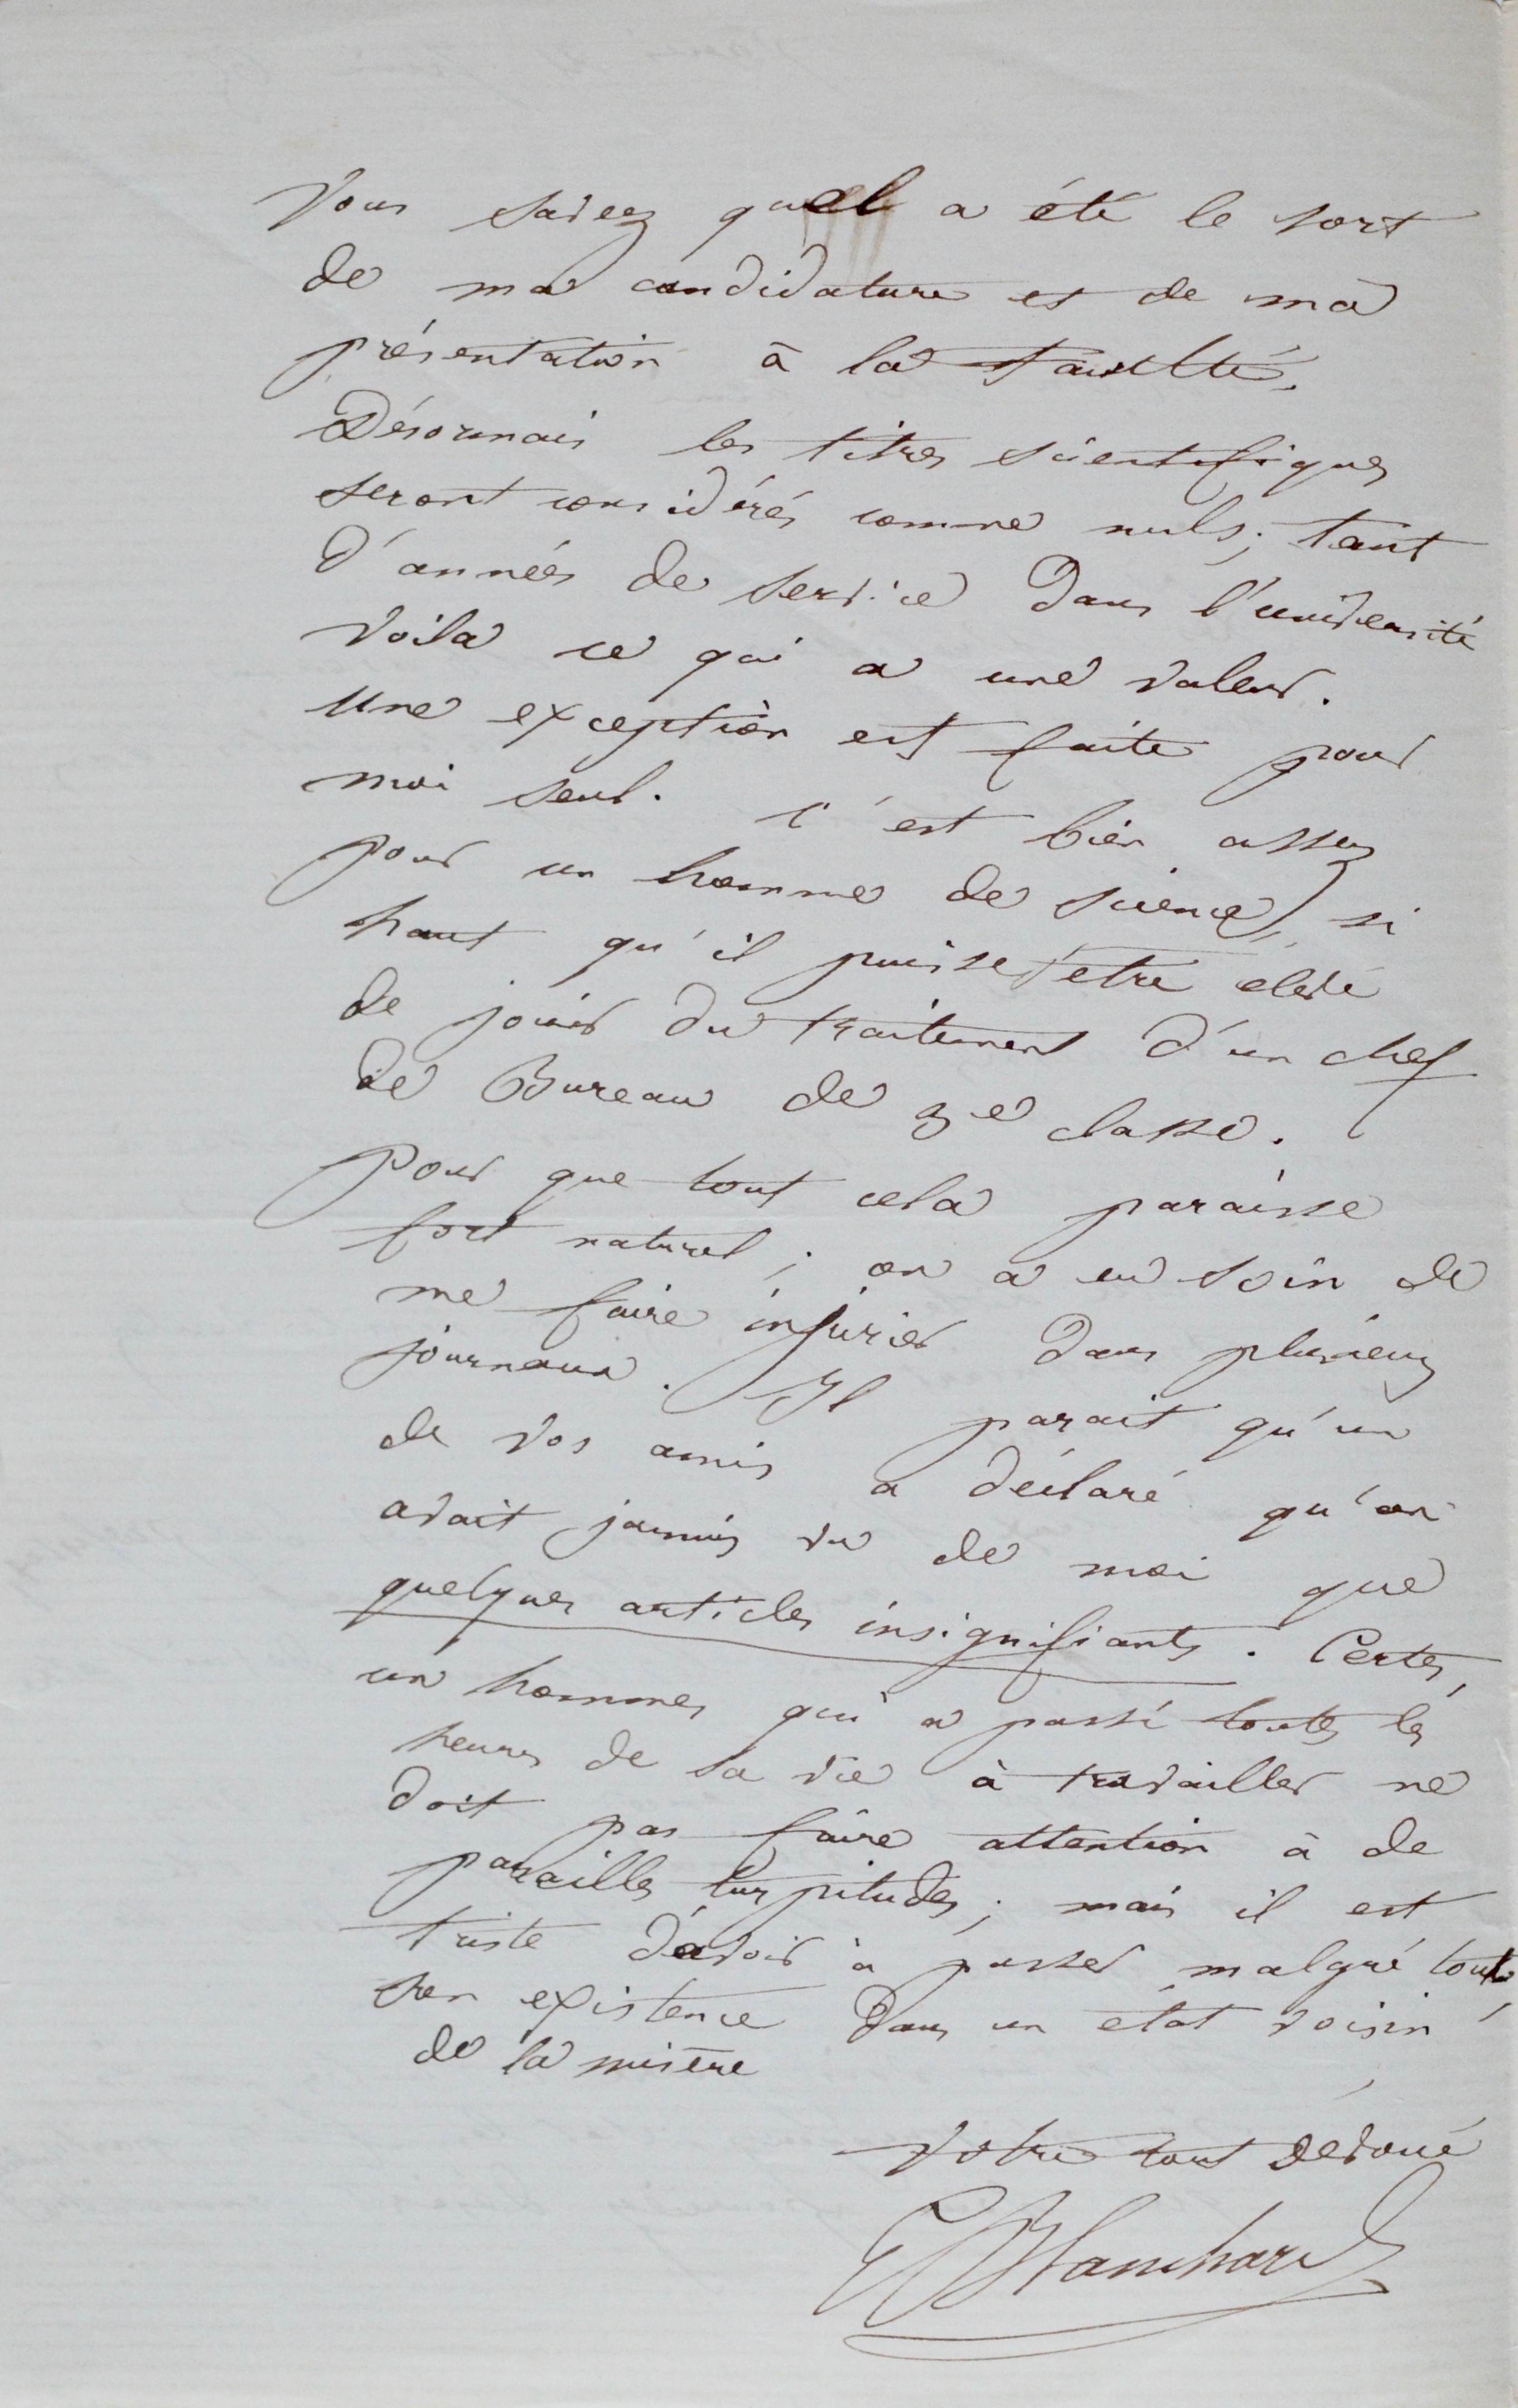 Vous savez quel a été le sort
de ma candidature et de ma
présentation à la Faculté.
Désormais les titres scientifiques
seront considérés comme nuls; tant
d'années de service dans l'université
voila ce qui a une valeur.
Une exception est faite pour
moi seul. C'est bien assez
pour un homme de science, si
haut qu'il puisse être elevé
de jouir du traitement d'un chef
de Bureau de 3e classe.
Pour que tout cela paraisse
fort naturel; on a eu soin de
me faire injurier dans plusieurs
journaux. Il parait qu'un
de vos amis a déclaré qu'on
avait jamais vu de moi que
quelques articles insignifiants. Certes,
un hommes qui a passé toutes les
heures de sa vie à travailler ne
doit pas faire attention à de
pareilles turpitudes; mais il est
triste d'avoir à passer malgré tout,
son existence dans un état voisin
de la misère
Votre tout dévoué
E Blanchard